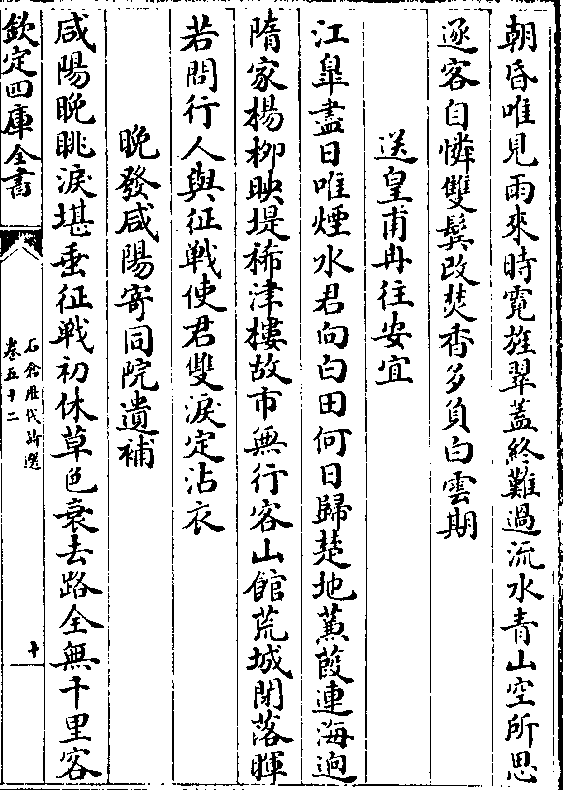 朝昏唯見雨來時霓旌翠蓋終難過流水青山空所思
逐客自憐雙鬢改焚香多負白雲期
送皇甫冉往安宜
江臯盡日唯煙水君向白田何日歸楚地蒹葭連海迥
隋家楊柳映堤稀津樓故市無行客山館荒城閉落暉
若問行人與征戰使君雙淚定沾衣
晚發咸陽寄同院遺補
咸陽晚眺淚堪垂征戰初休草色衰去路全無千里客
欽定四庫全書
石倉歷代詩選
卷五十二
十